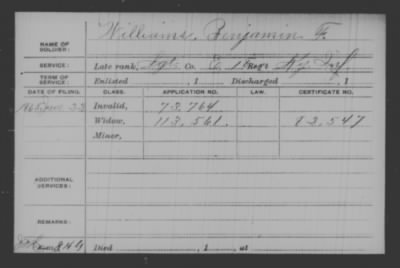 Williams, Benjamin F.
NAME OF SOLDIER:
SERVICE: Late rank, Co. E, 15 Reg't Ky. Inf.
TERM OF SERVICE: Enlisted , 1 Discharged , 1
DATE OF FILING. CLASS. APPLICATION NO. LAW. CERTIFICATE NO.
1865 22 Invalid, 73,764
Widow, 113,561 83,547
Minor,
ADDITIONAL SERVICES:
REMARKS:
Died , 1 , at